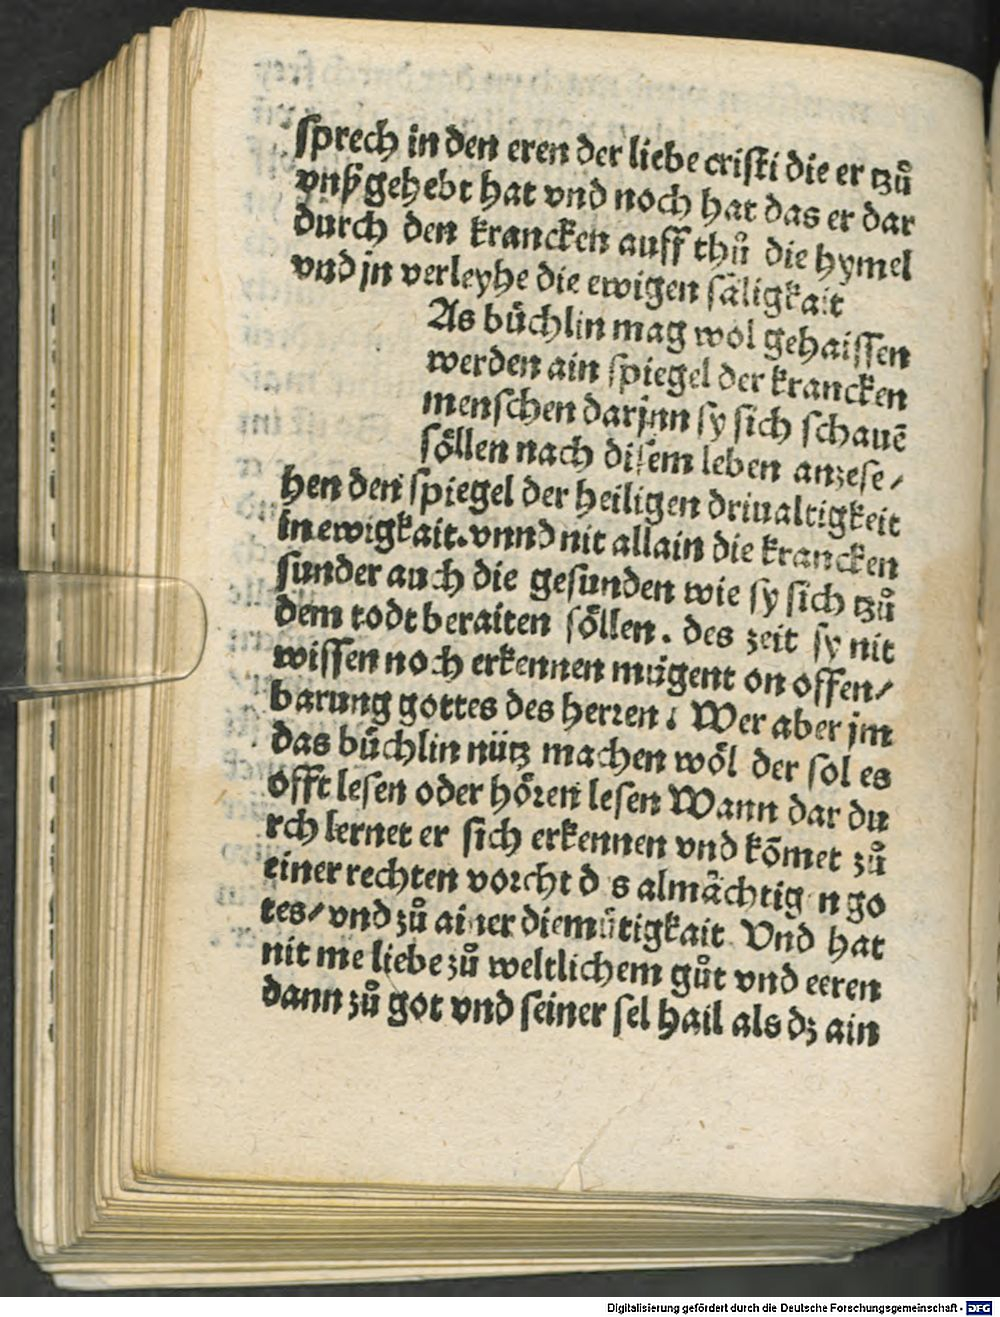 sprech in den eren der liebe cristi die er tzů
vnß gehebt hat vnd noch hat das er dar
durch den krancken auff thů die hymel
vnd jn verleyhe die ewigen säligkait
As bůchlin mag wol gehaissen
werden ain spiegel der krancken
menschen darjnn sy sich schauē
söllen nach disem leben anzese/
hen den spiegel der heiligen driualtigkeit
in ewigkait. vnnd nit allain die krancken
sunder auch die gesunden wie sy sich tzů
dem todt beraiten söllen. des zeit sy nit
wissen noch erkennen mügent on offen/
barung gottes des herren. Wer aber jm
das bůchlin nütz machen wöl der sol es
offt lesen oder hören lesen Wann dar du
rch lernet er sich erkennen vnd kōmet zů
einer rechten vorcht d s almächtig n go
tes/ vnd zů ainer diemůtigkait. Vnd hat
nit me liebe zů weltlichem gůt vnd eeren
dann zů got vnd seiner sel hail als dz ain
Digitalisierung gefördert durch die Deutsche Forschungsgemeinschaft - DFG